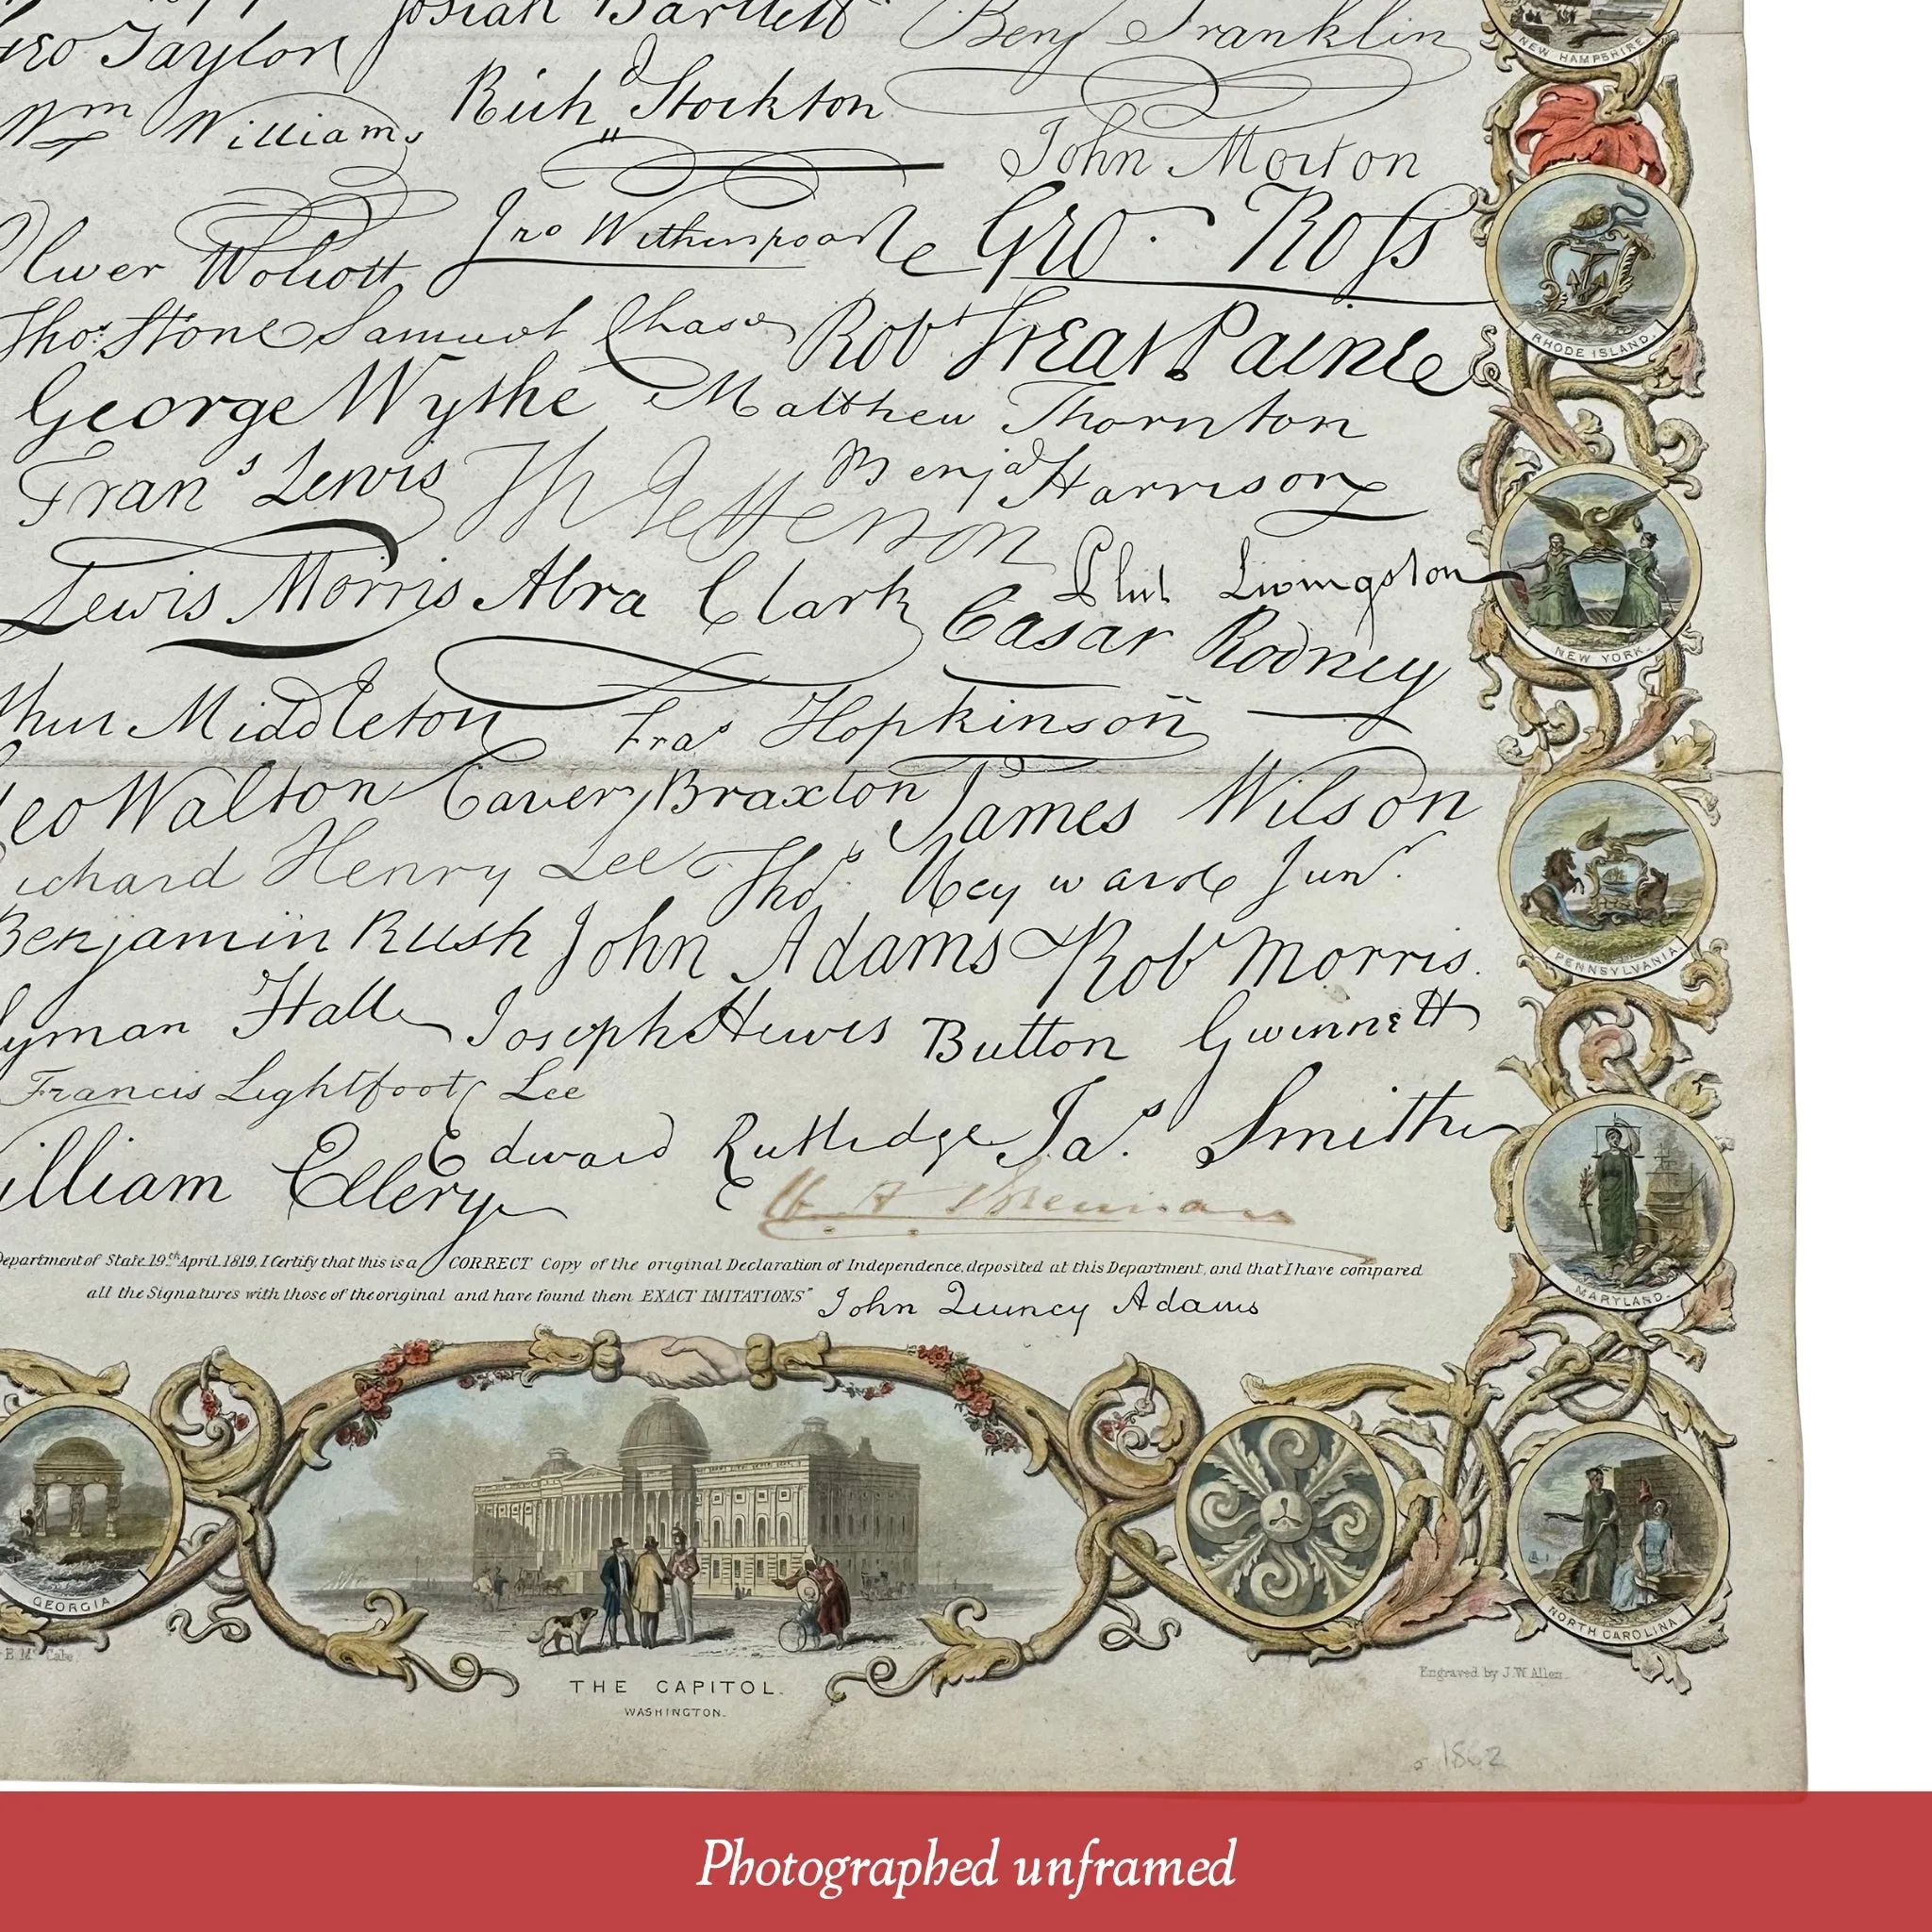 Josiah Bartlett
Benj Franklin
Geo Taylor
Richd Stockton
Wm Williams
John Morton
Oliver Wolcott
Jno Witherspoon
Geo. Ross
Thos. Stone Samuel Chase Robt Treat Paine
George Wythe Matthew Thornton
Frans Lewis Th Jefferson Benja Harrison
Lewis Morris Abra Clark Phil Livingston
Cæsar Rodney
Middleton Fras Hopkinson
Geo Walton Carter Braxton James Wilson
Richard Henry Lee Thos. Heyward Junr.
Benjamin Rush John Adams Robt Morris.
Lyman Hall Joseph Hewes Button Gwinnett
Francis Lightfoot Lee
William Ellery Edward Rutledge Jas. Smith
Department of State 19th April 1819, I Certify that this is a CORRECT Copy of the original Declaration of Independence, deposited at this Department, and that I have compared
all the Signatures with those of the original and have found them EXACT IMITATIONS" John Quincy Adams
NEW HAMPSHIRE.
RHODE ISLAND.
NEW YORK.
PENNSYLVANIA.
MARYLAND.
NORTH CAROLINA.
GEORGIA.
THE CAPITOL.
WASHINGTON.
Engraved by J.W. Allen.
1862
Photographed unframed